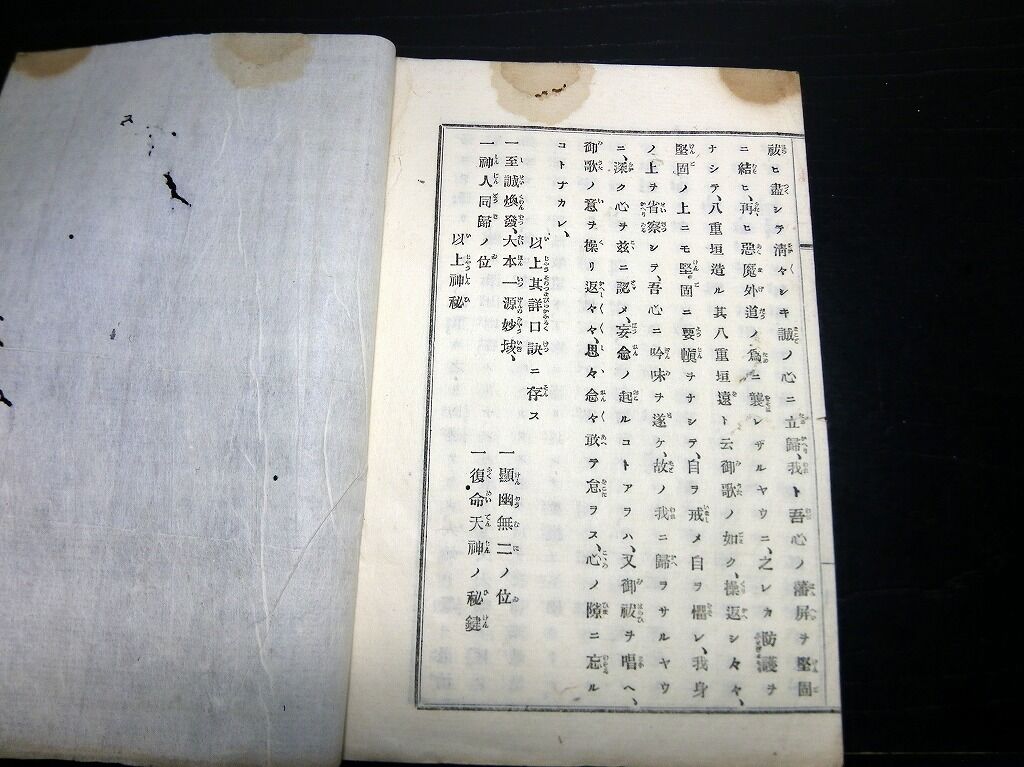 祓ヒ盡シテ淸々シキ誠ノ心ニ立歸、我ト吾心ノ藩屏ヲ堅固
ニ結ヒ、再ヒ惡魔外道ノ爲ニ襲レザルヤウニ、之レカ防護ヲ
ナシテ、八重垣造ル其八重垣遠ト云御歌ノ如ク、操返シ々々、
堅固ノ上ニモ堅固ニ要愼ヲナシテ、自ヲ戒メ自ヲ懼レ、我身
ノ上ヲ省察シテ、吾心ニ吟味ヲ遂ケ、故ノ我ニ歸ヲサルヤウ
ニ、深ク心ヲ玆ニ認メ、妄念ノ起ルコトアヲハ、又御祓ヲ唱ヘ、
御歌ノ意ヲ操リ返々々、思々念々敢テ怠ヲス、心ノ隙ニ忘ル
コトナカレ、
以上其詳口訣ニ存ス
一至誠煥發、大本一源妙域、
一顯幽無二ノ位
一神人同歸ノ位
一復命天神ノ秘鍵
以上神秘